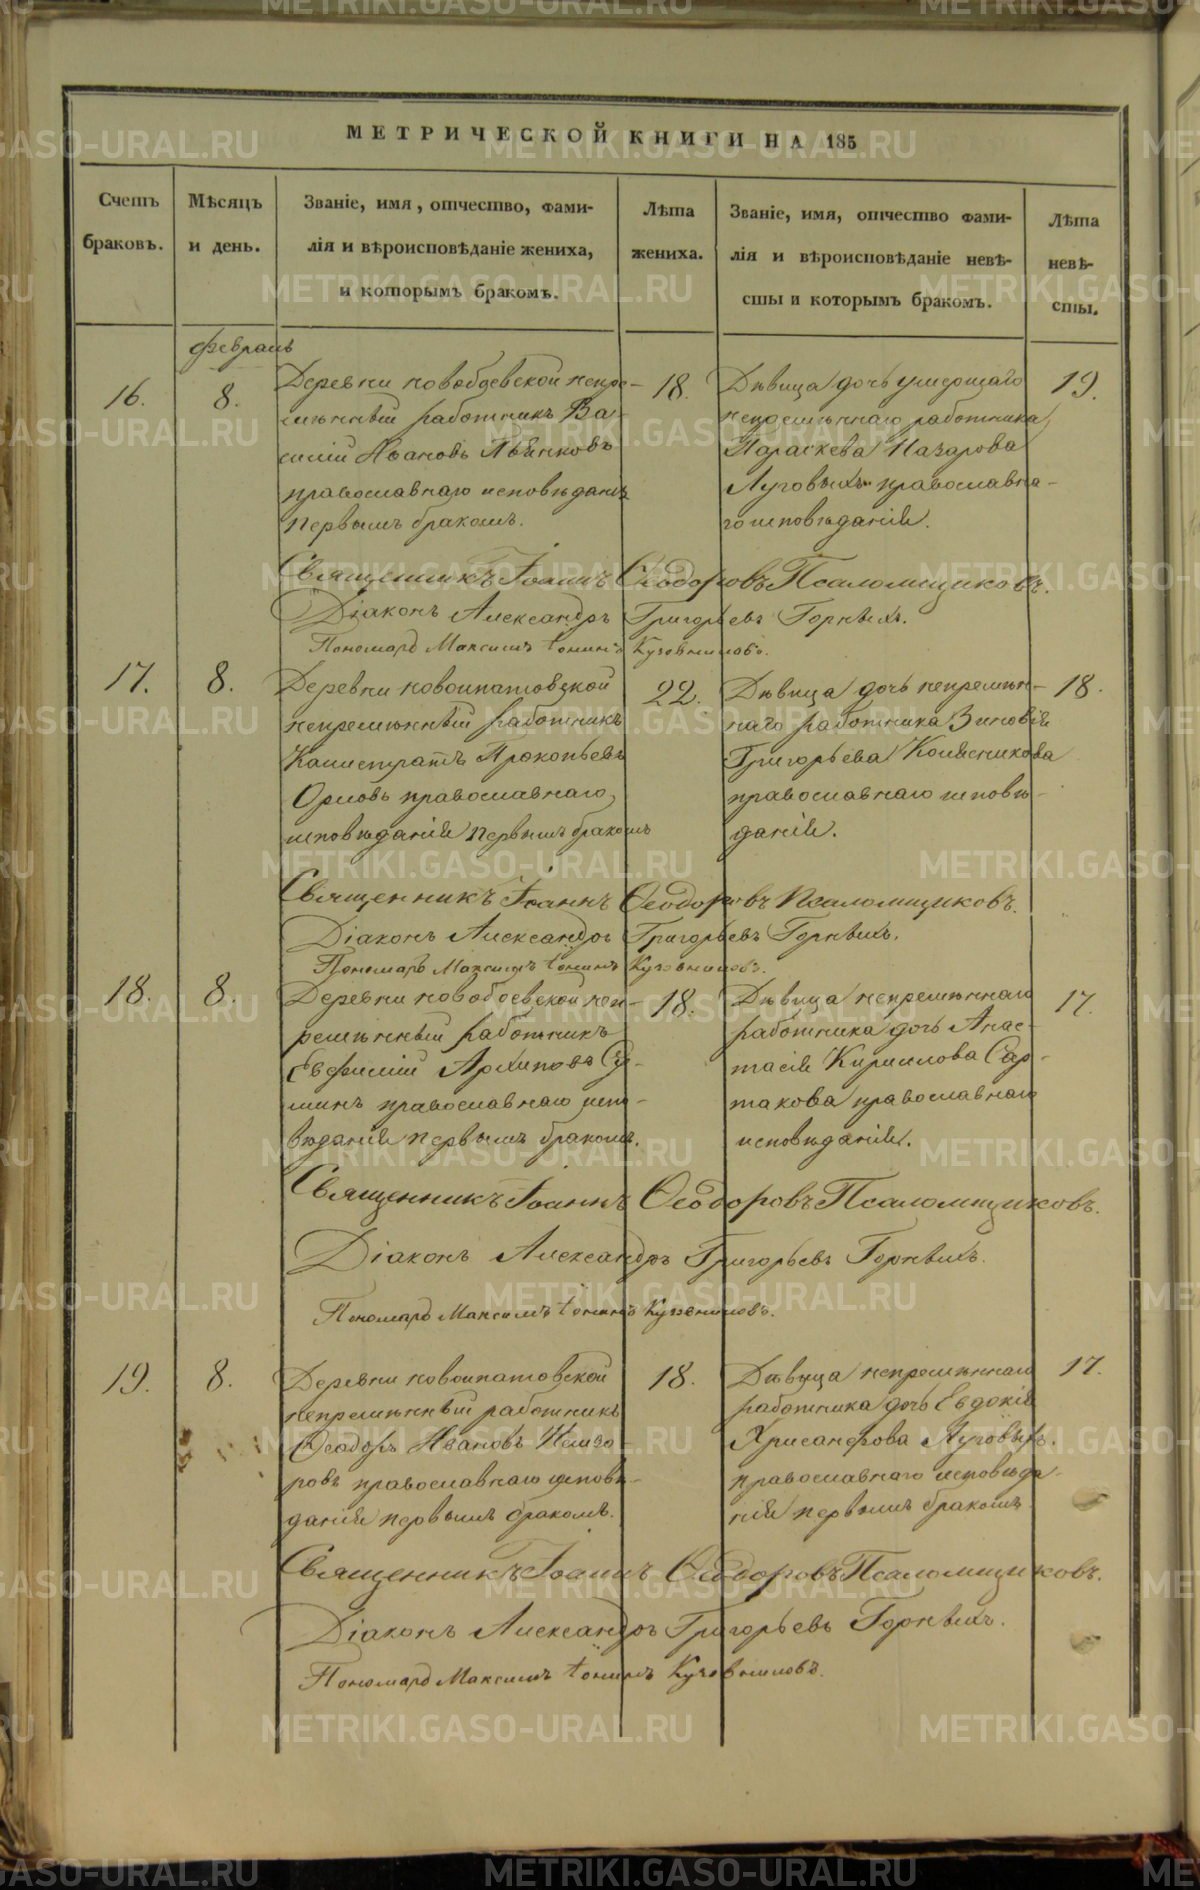 МЕТРИЧЕСКОЙ КНИГИ НА 185
Счетъ браковъ.
Мѣсяцъ и день.
Званіе, имя, отчество, фами-
лія и вѣроисповѣданіе жениха,
и которымъ бракомъ.
Лѣта жениха.
Званіе, имя, отчество фами-
лія и вѣроисповѣданіе невѣ-
сты и которымъ бракомъ.
Лѣта невѣ-
сты.
февраль
16. 8.
Деревни новободевской непре-
мѣнный работникъ Ва-
силій Ивановъ
православнаго исповѣданія
первымъ бракомъ.
18.
Дѣвица дочь умершаго
непремѣннаго работника
Параскева Назарова
Луговыхъ православна-
го исповѣданія.
19.
Священникъ Іоаннъ Ѳеодоровъ Псаломщиковъ.
Діаконъ Александръ Григорьевъ Горныхъ.
Пономарь Максимъ Іонинъ Кузовниковъ.
17. 8.
Деревни новоипатовской
непремѣнный работникъ
Калистратъ Прокопьевъ
Орловъ православнаго
исповѣданія первымъ бракомъ
22.
Дѣвица дочь непремѣн-
наго работника Зиновія
Григорьева Колясникова
православнаго исповѣ-
данія.
18.
Священникъ Іоаннъ Ѳеодоровъ Псаломщиковъ.
Діаконъ Александръ Григорьевъ Горныхъ.
Пономарь Максимъ Іонинъ Кузовниковъ.
18. 8.
Деревни новободевской неп-
ремѣнный работникъ
Евфимій Архиповъ Су-
минъ православнаго испо-
вѣданія первымъ бракомъ.
18.
Дѣвица непремѣннаго
работника дочь Анас-
тасія Кирилова Сар-
такова православнаго
исповѣданія.
17.
Священникъ Іоаннъ Ѳеодоровъ Псаломщиковъ.
Діаконъ Александръ Григорьевъ Горныхъ.
Пономарь Максимъ Іонинъ Кузовниковъ.
19. 8.
Деревни новоипатовской
непремѣнный работникъ
Ѳеодоръ Ивановъ
ровъ православнаго исповѣ-
данія первымъ бракомъ.
18.
Дѣвица непремѣннаго
работника дочь Евдокія
Хрисанфова Луговыхъ.
православнаго исповѣда-
нія первымъ бракомъ
17.
Священникъ Іоаннъ Ѳеодоровъ Псаломщиковъ.
Діаконъ Александръ Григорьевъ Горныхъ.
Пономарь Максимъ Іонинъ Кузовниковъ.
METRIKI.GASO-URAL.RU